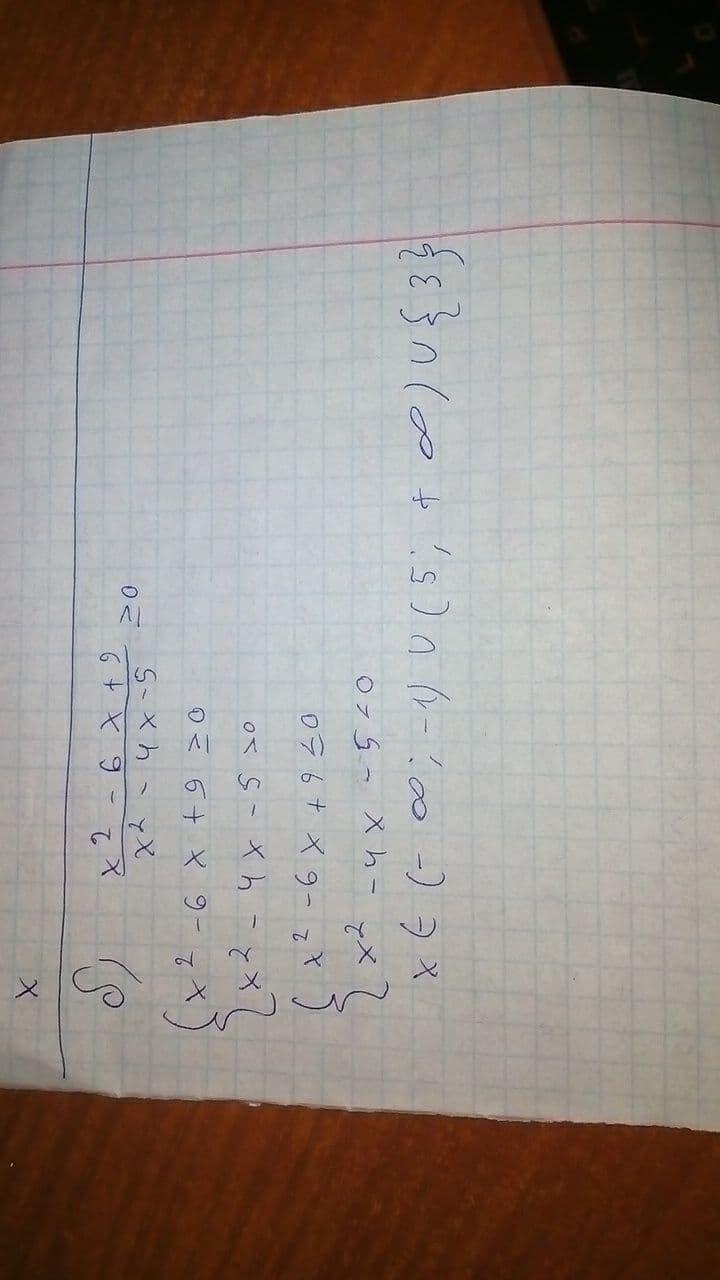 x
б) x² - 6x + 9 / x² - 4x - 5 ≥ 0
{ x² - 6x + 9 ≥ 0
x² - 4x - 5 > 0
{ x² - 6x + 9 ≤ 0
x² - 4x - 5 < 0
x ∈ (- ∞; -1) ∪ (5; + ∞) ∪ {3}